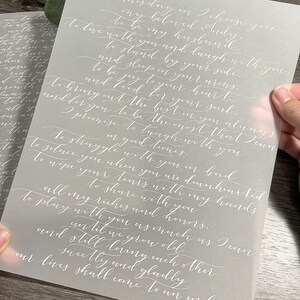 this day I choose you
my beloved Andy
to be my husband
to live with you and laugh with you
to stand by your side
and sleep in your arms
to be joy to your heart
and food for your soul
to bring out the best in you always
and for you to be the most that I can
I promise to laugh with you
in good times
to struggle with you in bad
to solace you when you are downhearted
to wipe your tears with my hands
to share with you
all my riches and honors
to play with you as much as I can
until we grow old
and still loving each other
sweetly and gladly
our lives shall come to an end